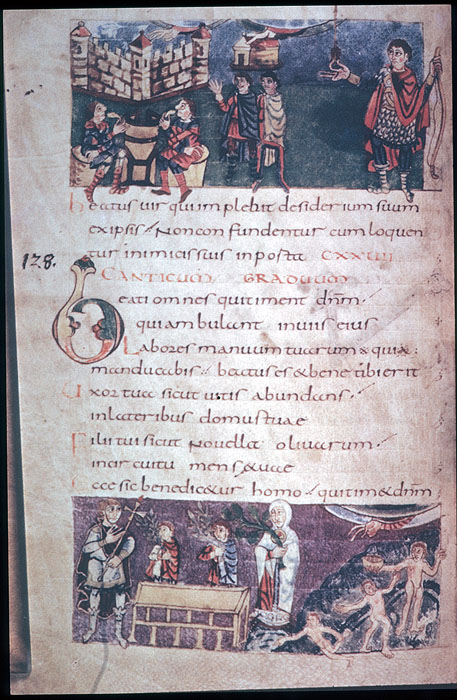 beatus vir qui implebit desiderium suum
ex ipsis. Non confundentur cum loquen
tur inimicis suis in porta. CXXVII
128.
CANTICUM GRADUUM
Beati omnes qui timent dnm.
qui ambulant in viis eius
Labores manuum tuarum & quia
manducabis. beatus es & bene tibi erit
Uxor tua sicut vitis abundans.
in lateribus domus tuae
Filii tui sicut novella olivarum.
in circuitu mensae tuae
Ecce sic benedicetur homo. qui tim& dnm